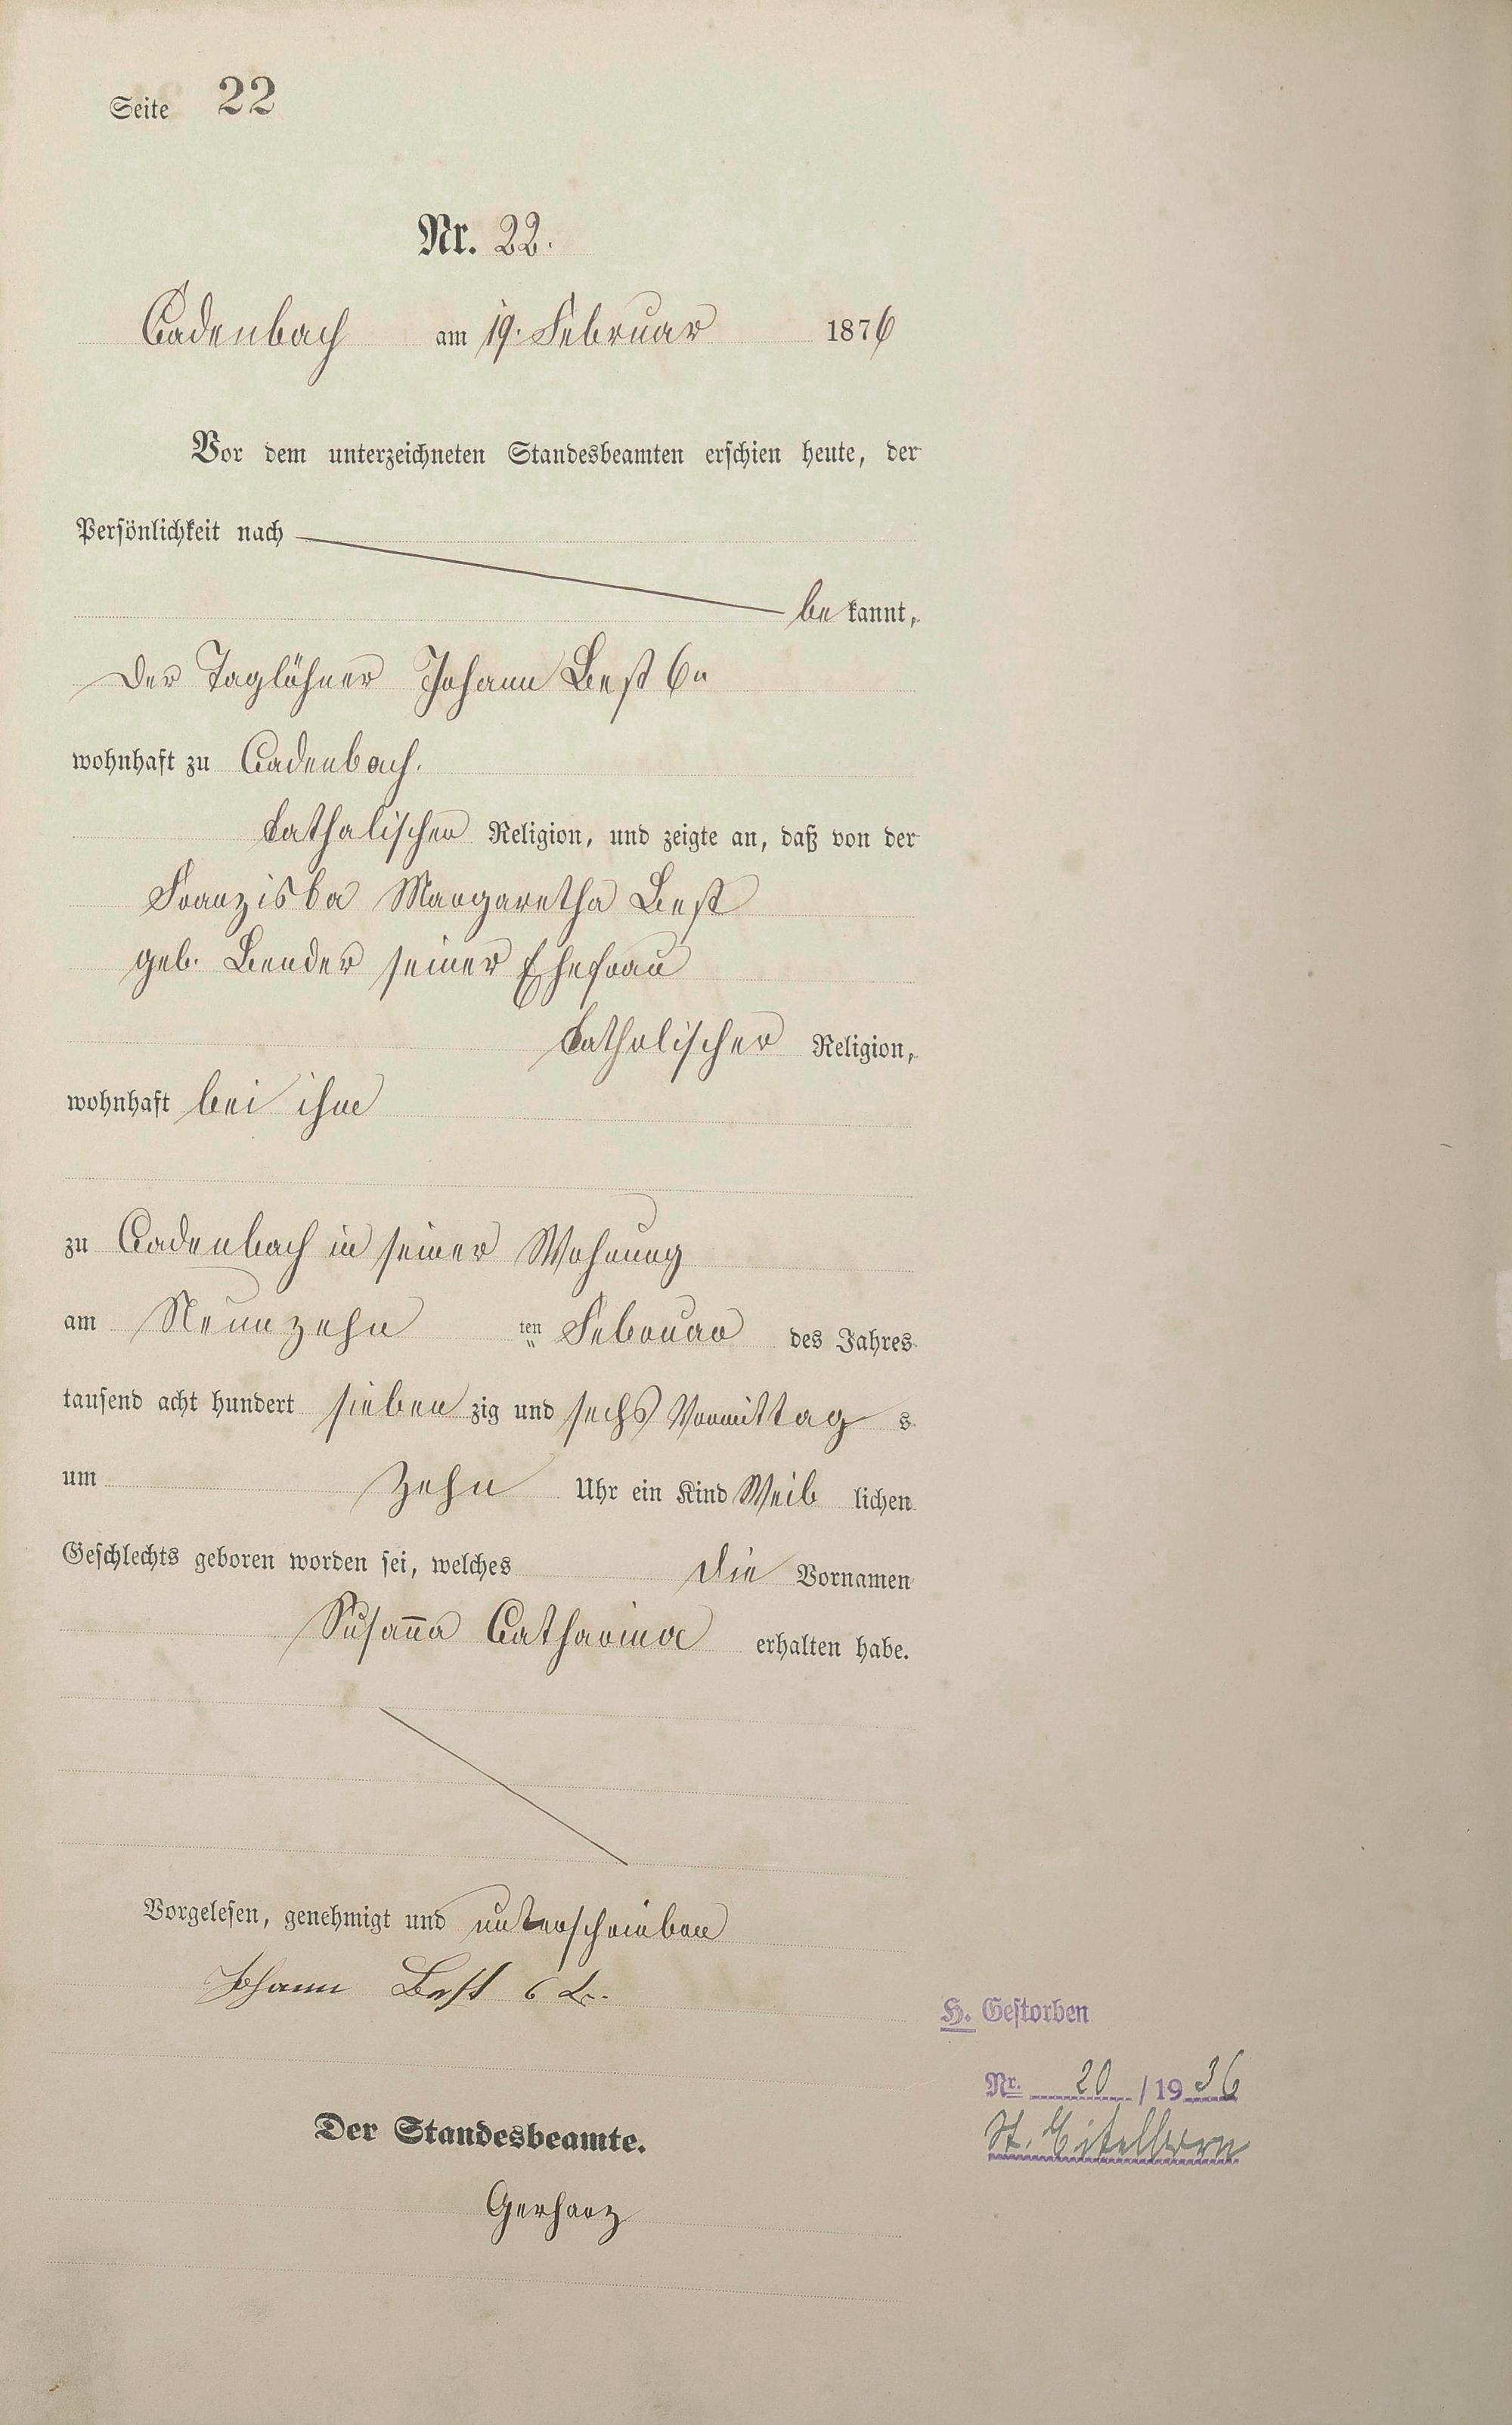 Seite 22
Nr. 22.
Cadenbach am 19. Februar 1876
Vor dem unterzeichneten Standesbeamten erschien heute, der
Persönlichkeit nach
be kannt,
der Taglöhner Johann Best 6r
wohnhaft zu Cadenbach.
katholischer Religion, und zeigte an, daß von der
Franziska Margaretha Best
geb. Bender seiner Ehefrau
katholischer Religion,
wohnhaft bei ihm
zu Cadenbach in seiner Wohnung
am Neunzehn ten Februar des Jahres
tausend acht hundert sieben zig und sechs Vormittag s
um Zehn Uhr ein Kind Weib lichen
Geschlechts geboren worden sei, welches die Vornamen
Susan̄a Catharina erhalten habe.
Vorgelesen, genehmigt und unterschrieben
Johann Best 6
Der Standesbeamte.
Gerharz
H. Gestorben
Nr. 20 / 19 36
St.